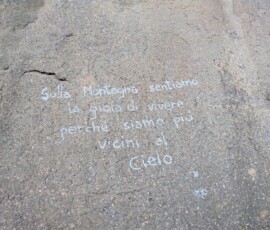 Sulla Montagna sentiamo
la gioia di vivere
perchè siamo più
vicini al
Cielo